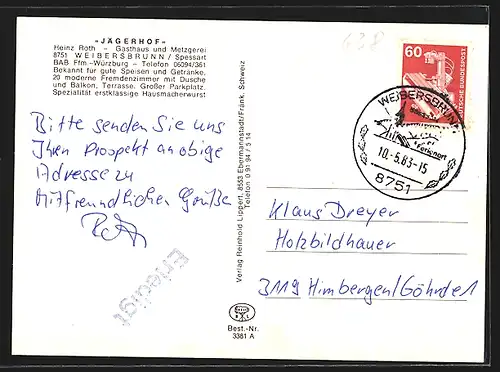 638
-JÄGERHOF-
Heinz Roth - Gasthaus und Metzgerei
8751 WEIBERSBRUNN / Spessart
BAB Ffm.-Würzburg - Telefon 06094/361
Bekannt für gute Speisen und Getränke,
20 moderne Fremdenzimmer mit Dusche
und Balkon, Terrasse. Großer Parkplatz.
Spezialität erstklassige Hausmacherwurst
Bitte senden Sie uns
Ihren Prospekt an obige
Adresse zu
Mit freundlichen Grüße
Roth
Erledigt
Verlag Reinhold Lippert, 8553 Ebermannstadt/Fränk. Schweiz
Telefon 0 91 94 / 5 14
Best.-Nr.
3361 A
60
DEUTSCHE BUNDESPOST
WEIBERSBRUNN
Ferienort
10.-5.83-15
8751
Klaus Dreyer
Holzbildhauer
3119 Himbergen/Göhrde 1